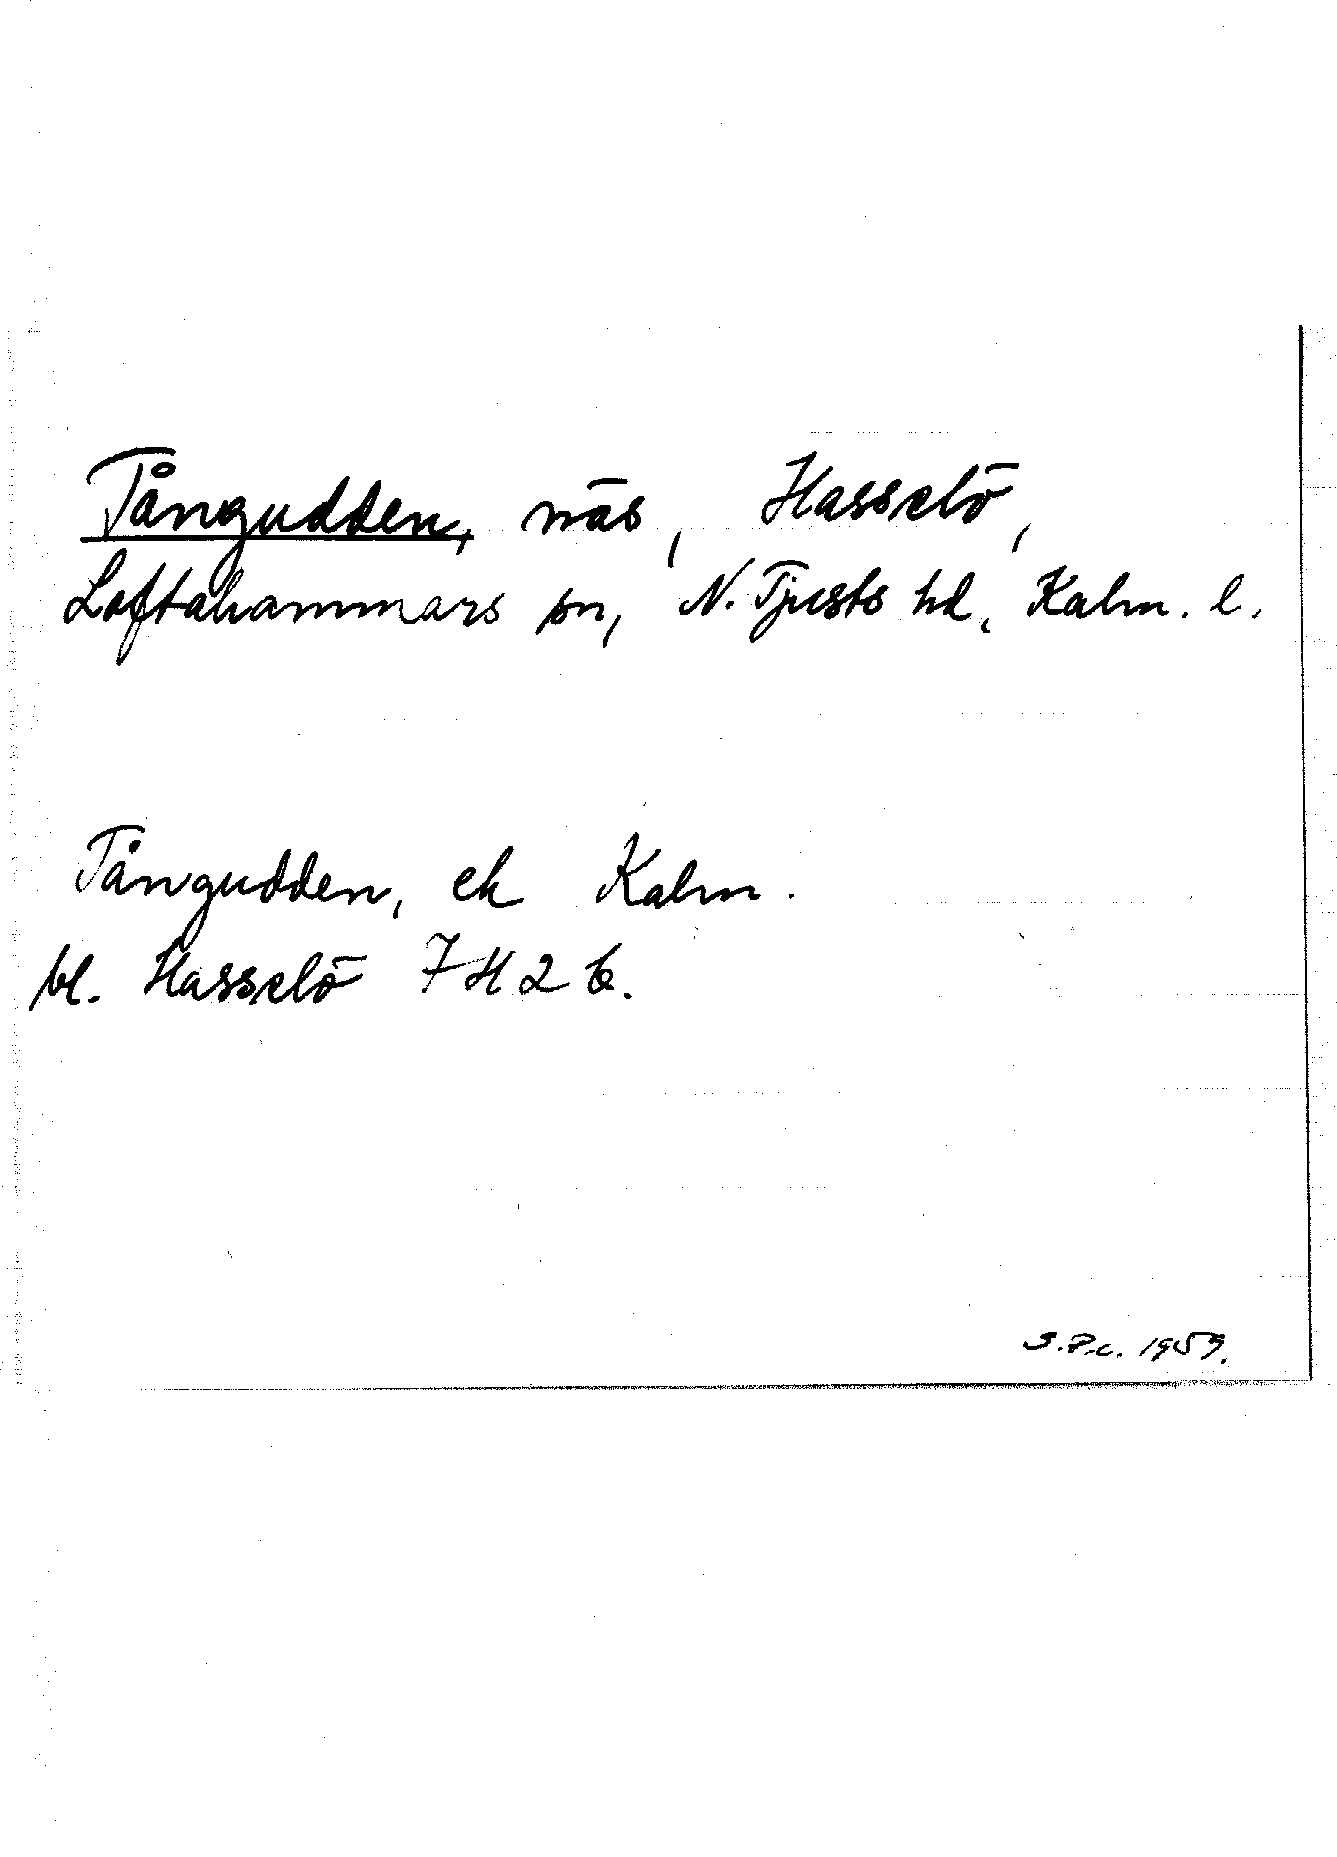 Tångudden, näs, Hasselö,
Loftahammars sn, N. Tjusts hd, Kalm. l.
Tångudden, ek Kalm.
bl. Hasselö 7H2b.
S.P.c. 1959.